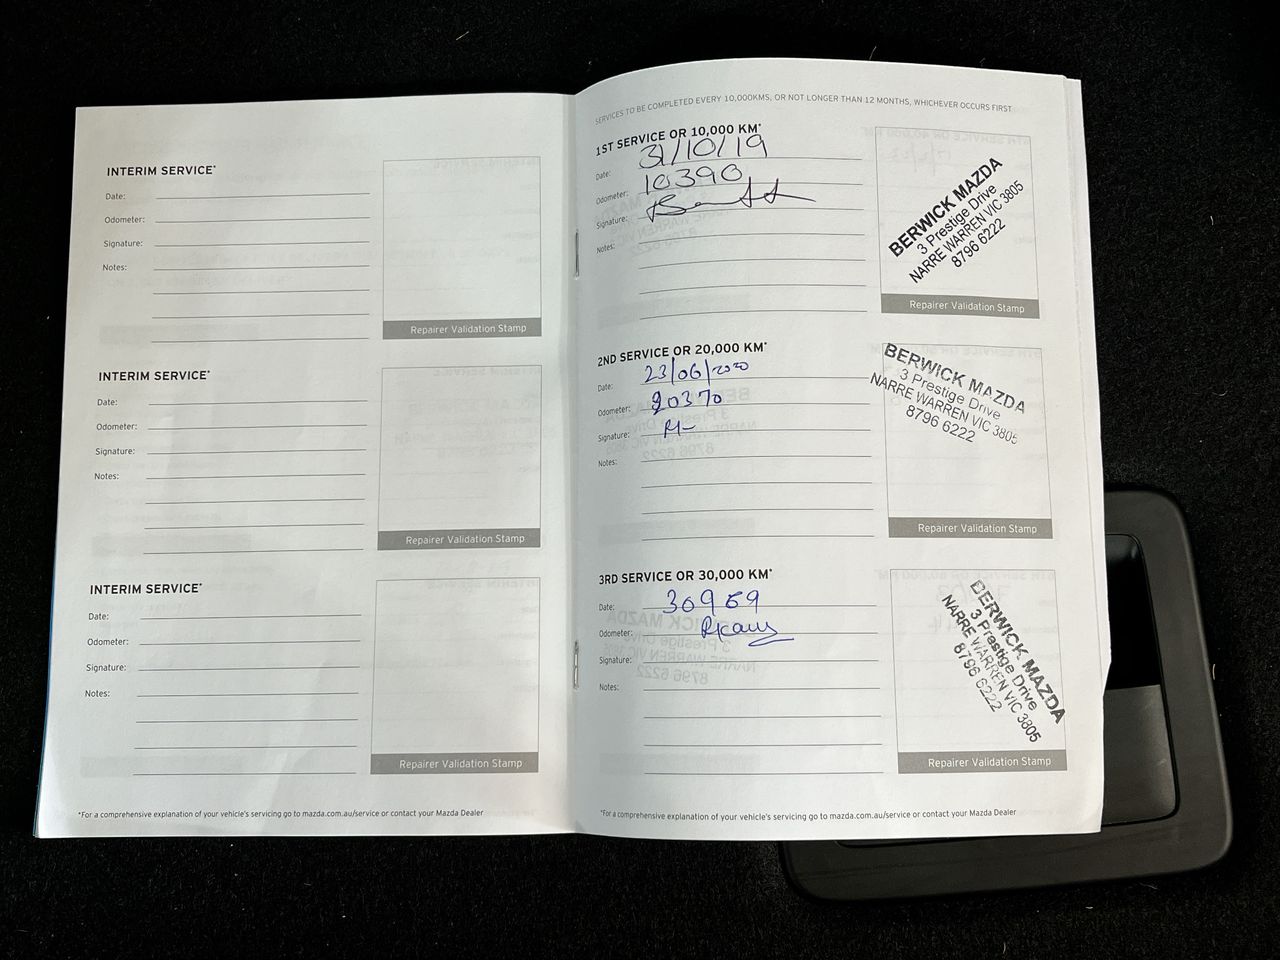 INTERIM SERVICE*
Date:
Odometer:
Signature:
Notes:
Repairer Validation Stamp
INTERIM SERVICE*
Date:
Odometer:
Signature:
Notes:
Repairer Validation Stamp
INTERIM SERVICE*
Date:
Odometer:
Signature:
Notes:
Repairer Validation Stamp
*For a comprehensive explanation of your vehicle's servicing go to mazda.com.au/service or contact your Mazda Dealer
SERVICES TO BE COMPLETED EVERY 10,000KMS, OR NOT LONGER THAN 12 MONTHS, WHICHEVER OCCURS FIRST
1ST SERVICE OR 10,000 KM*
Date: 31/10/19
Odometer: 10390
Signature:
Notes:
BERWICK MAZDA
3 Prestige Drive
NARRE WARREN VIC 3805
8796 6222
Repairer Validation Stamp
2ND SERVICE OR 20,000 KM*
Date: 23/06/2020
Odometer: 20370
Signature:
Notes:
BERWICK MAZDA
3 Prestige Drive
NARRE WARREN VIC 3805
8796 6222
Repairer Validation Stamp
3RD SERVICE OR 30,000 KM*
Date: 30969
Odometer:
Signature:
Notes:
BERWICK MAZDA
3 Prestige Drive
NARRE WARREN VIC 3805
8796 6222
Repairer Validation Stamp
*For a comprehensive explanation of your vehicle's servicing go to mazda.com.au/service or contact your Mazda Dealer